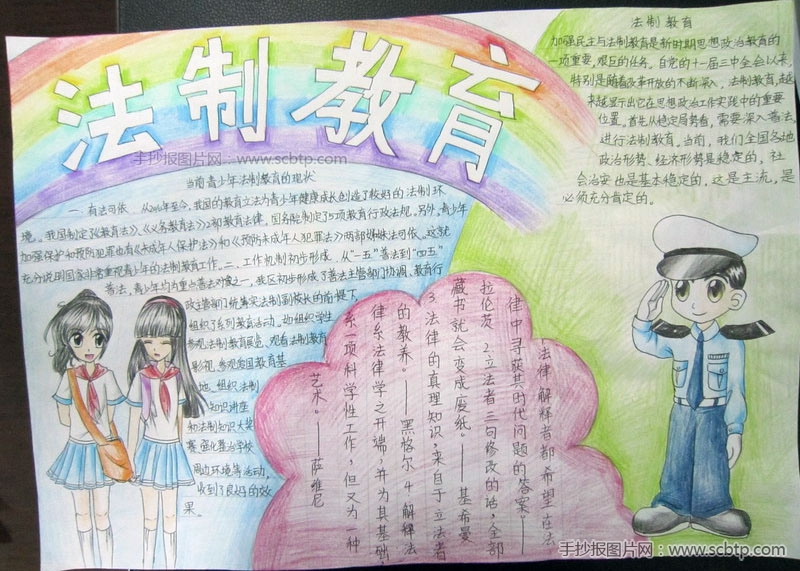 法制教育
手抄报图片网：www.scbtp.com
当前青少年法制教育的现状
一、有法可依。从2016年至今，我国的教育立法为青少年健康成长创造了较好的法制环
境。我国制定了《教育法》、《义务教育法》2部教育法律。国务院制定了5项教育行政法规。另外，青少年
加强保护和预防犯罪也有《未成年人保护法》和《预防未成年人犯罪法》两部姊妹法可依。这就
充分说明国家非常重视青少年的法制教育工作。二、工作机制初步形成，从“一五”普法到“四五”
普法。青少年均为重点普法对象之一，我区初步形成了普法主管部门协调、教育行
政主管部门统筹实法制副校长的前提下，
组织了系列教育活动。如组织学生
参观法制教育展览、观看法制教育
影视、参观爱国教育基
地、组织法制
知识讲座
和法制知识大奖
赛、强化整治学校
周边环境等活动，
收到了良好的效
果。
法制教育
加强民主与法制教育是新时期思想政治教育的
一项重要、艰巨的任务。自党的十一届三中全会以来，
特别是随着改革开放的不断深入，法制教育，越
来越显示出它在思想政治工作实践中的重要
位置。首先从稳定局势看，需要深入普法，
进行法制教育。当前，我们全国各地
政治形势、经济形势是稳定的，社
会治安也是基本稳定的。这是主流，是
必须充分肯定的。
法律解释者都希望在法
律中寻获其时代问题的答案。——
拉伦茨 2.立法者三句修改的话，全部
藏书就会变成废纸。——基希曼
3.法律的真理知识，来自于立法者
的教养。——黑格尔 4.解释法
律系法律学之开端，并为其基础，
系一项科学性工作，但又为一种
艺术。——萨维尼
手抄报图片网：www.scbtp.com